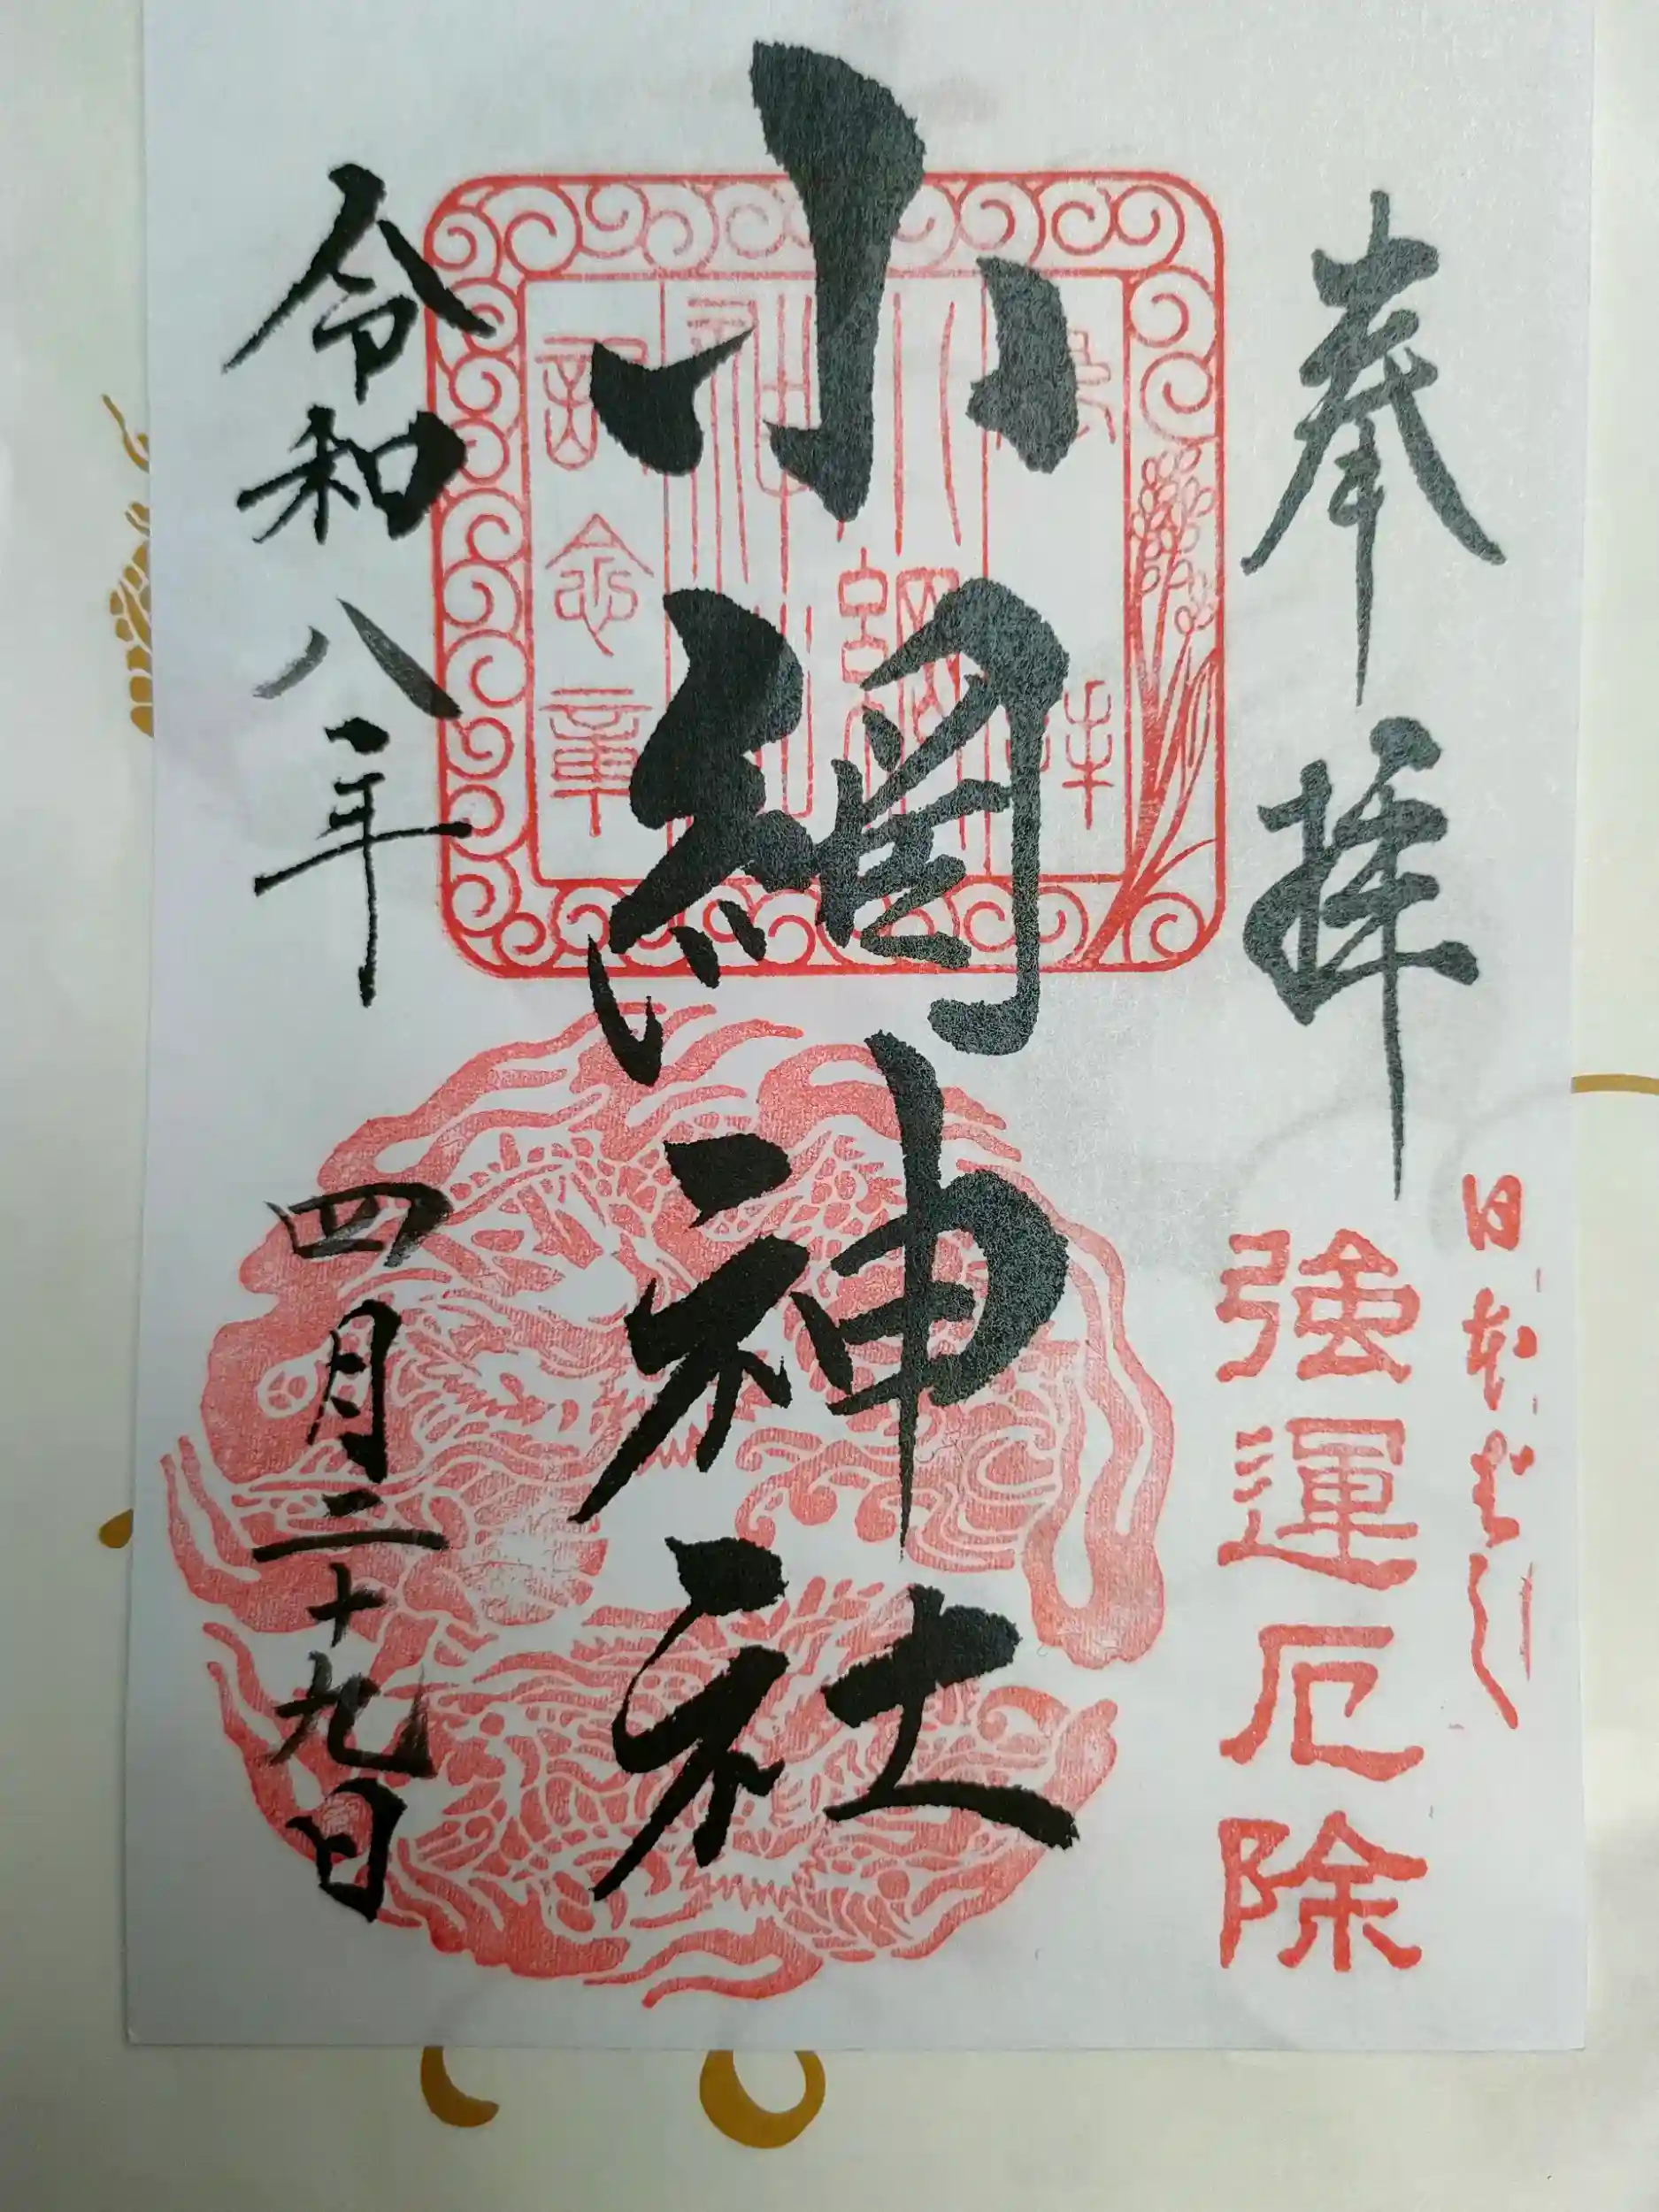 奉拝
日本ばし
強運厄除
小網神社
参拝
小網
神社
記念章
令和八年
四月二十九日